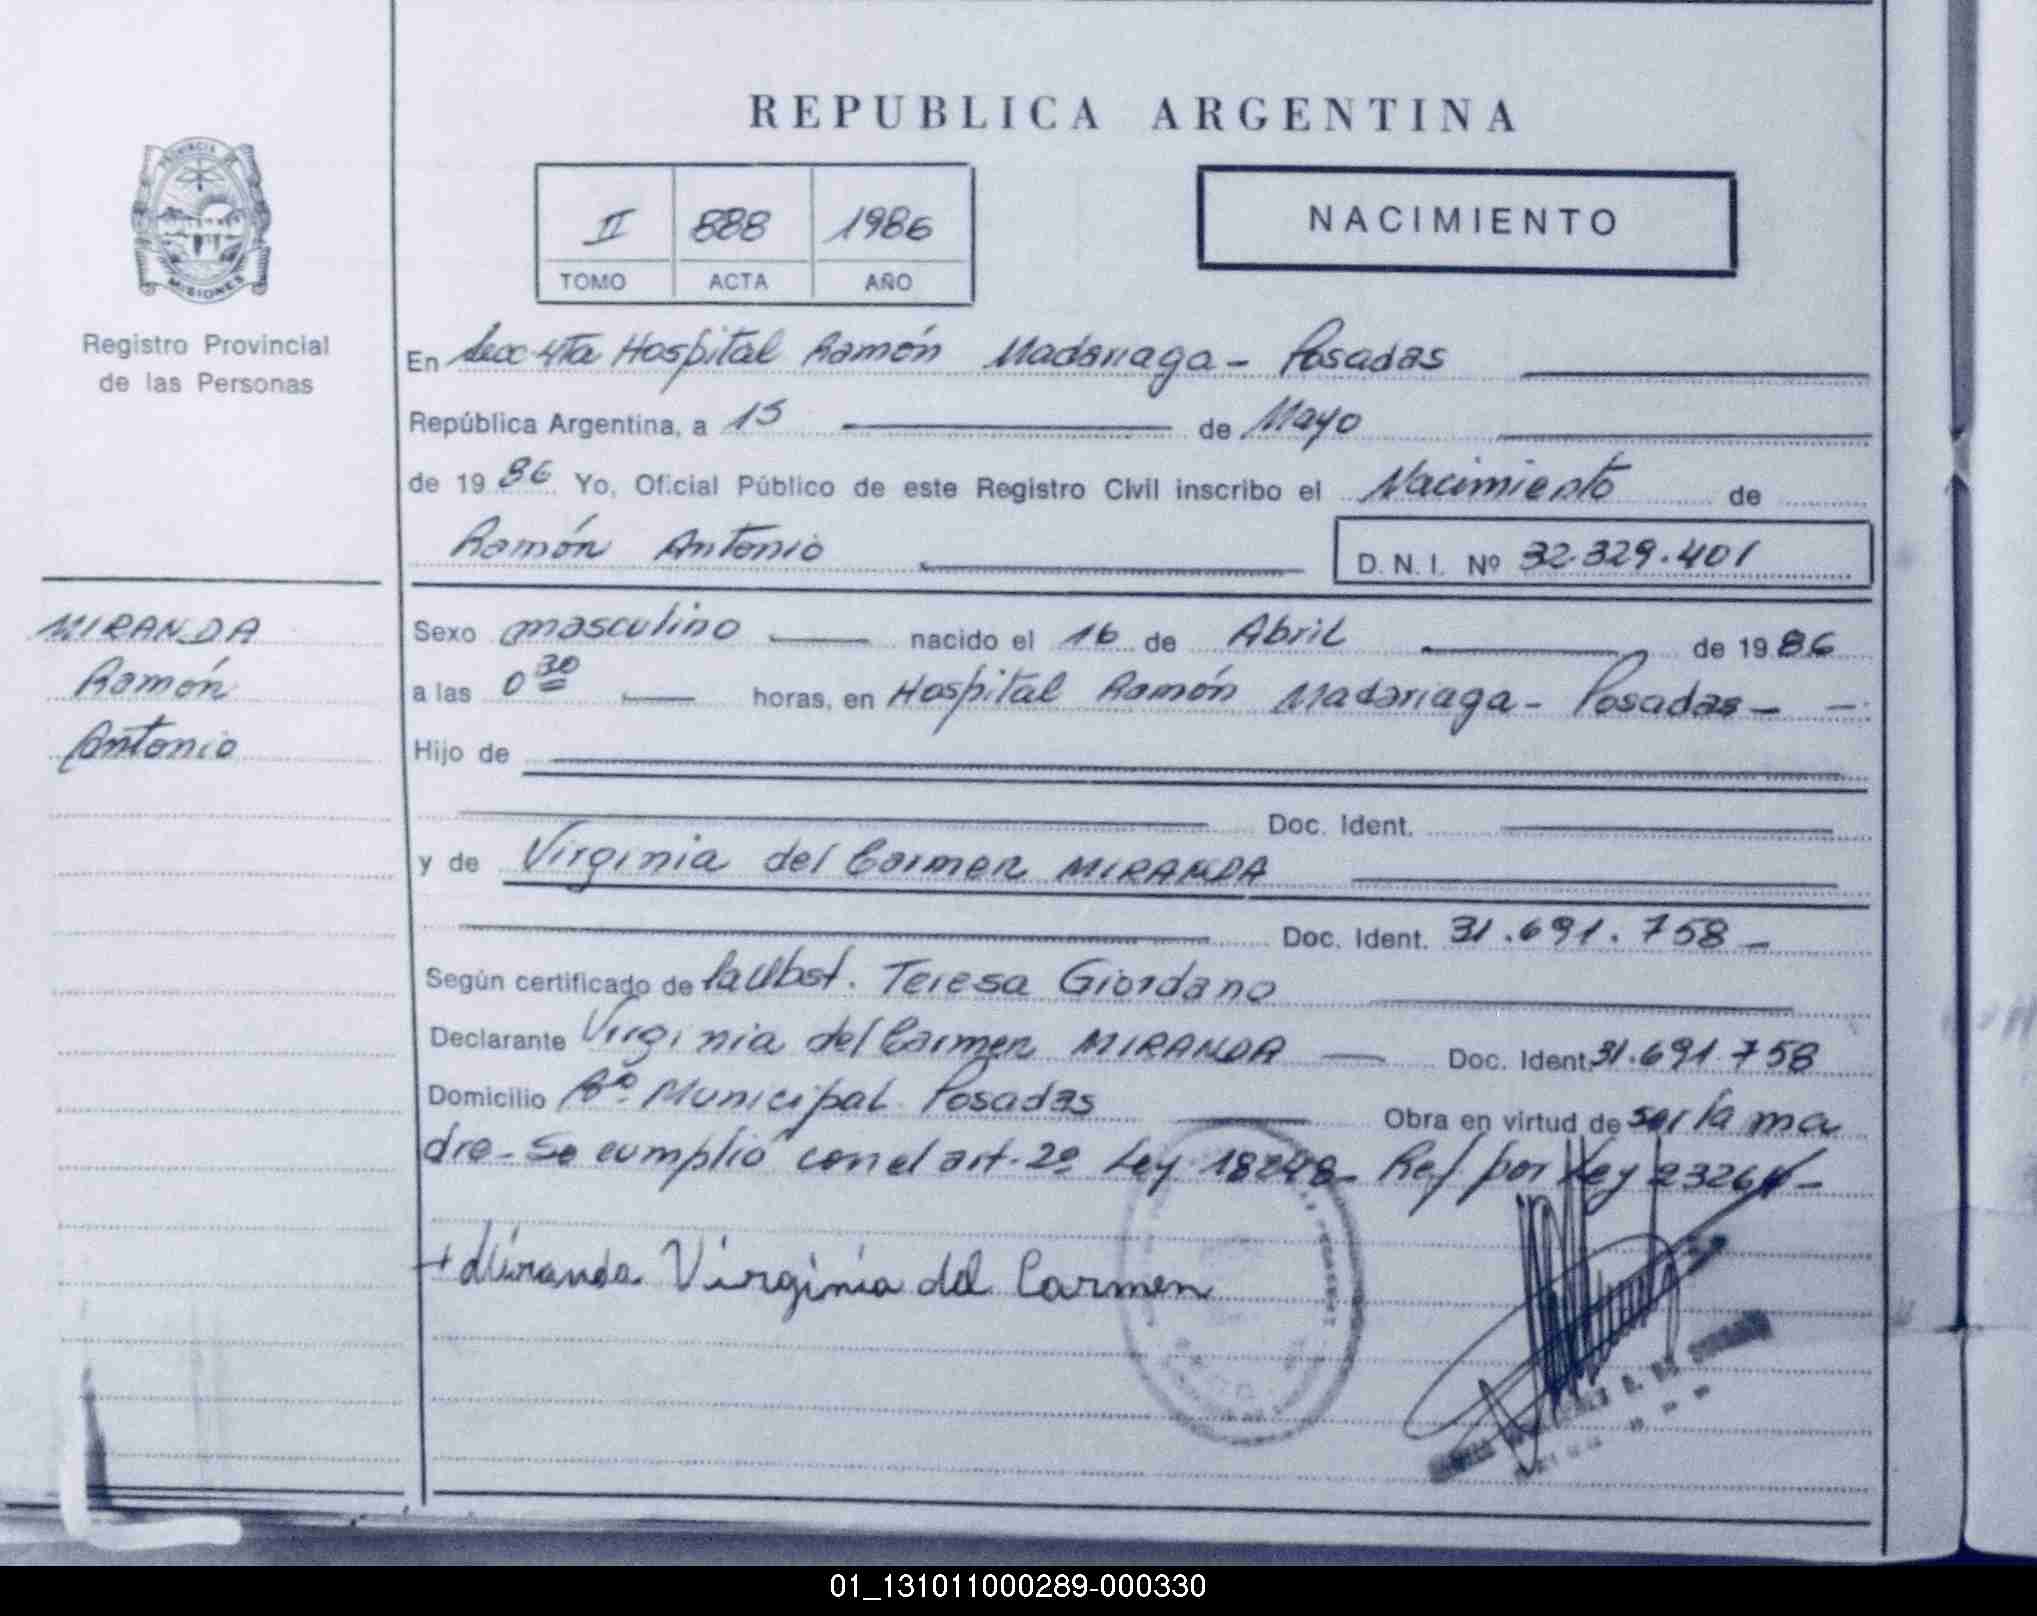 REPUBLICA ARGENTINA
PROVINCIA DE
MISIONES
Registro Provincial
de las Personas
II 888 1986
TOMO ACTA AÑO
NACIMIENTO
En Secc 4ta Hospital Ramón Madariaga - Posadas
República Argentina, a 15 de Mayo
de 19 86 Yo, Oficial Público de este Registro Civil inscribo el Nacimiento de
Ramón Antonio
D. N. I. Nº 32.329.401
MIRANDA
Ramón
Antonio
Sexo masculino nacido el 16 de Abril de 19 86
a las 0 30 horas, en Hospital Ramón Madariaga - Posadas -
Hijo de
Doc. Ident.
y de Virginia del Carmen MIRANDA
Doc. Ident. 31.691.758 -
Según certificado de la Obst. Teresa Giordano
Declarante Virginia del Carmen MIRANDA Doc. Ident. 31.691.758
Domicilio Bº Municipal Posadas Obra en virtud de ser la ma
dre - Se cumplió con el art. 2º Ley 18248 - Ref por Ley 23264 -
+ Miranda Virginia del Carmen
01_131011000289-000330